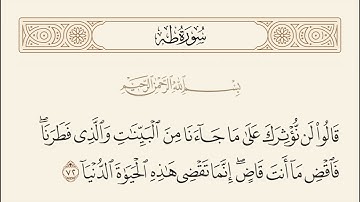 سُورَةُ طه
بِسْمِ ٱللَّهِ ٱلرَّحْمَٰنِ ٱلرَّحِيمِ
قَالُوا۟ لَن نُّؤْثِرَكَ عَلَىٰ مَا جَآءَنَا مِنَ ٱلْبَيِّنَٰتِ وَٱلَّذِى فَطَرَنَا ۖ
فَٱقْضِ مَآ أَنتَ قَاضٍ ۖ إِنَّمَا تَقْضِى هَٰذِهِ ٱلْحَيَوٰةَ ٱلدُّنْيَآ ٧٢